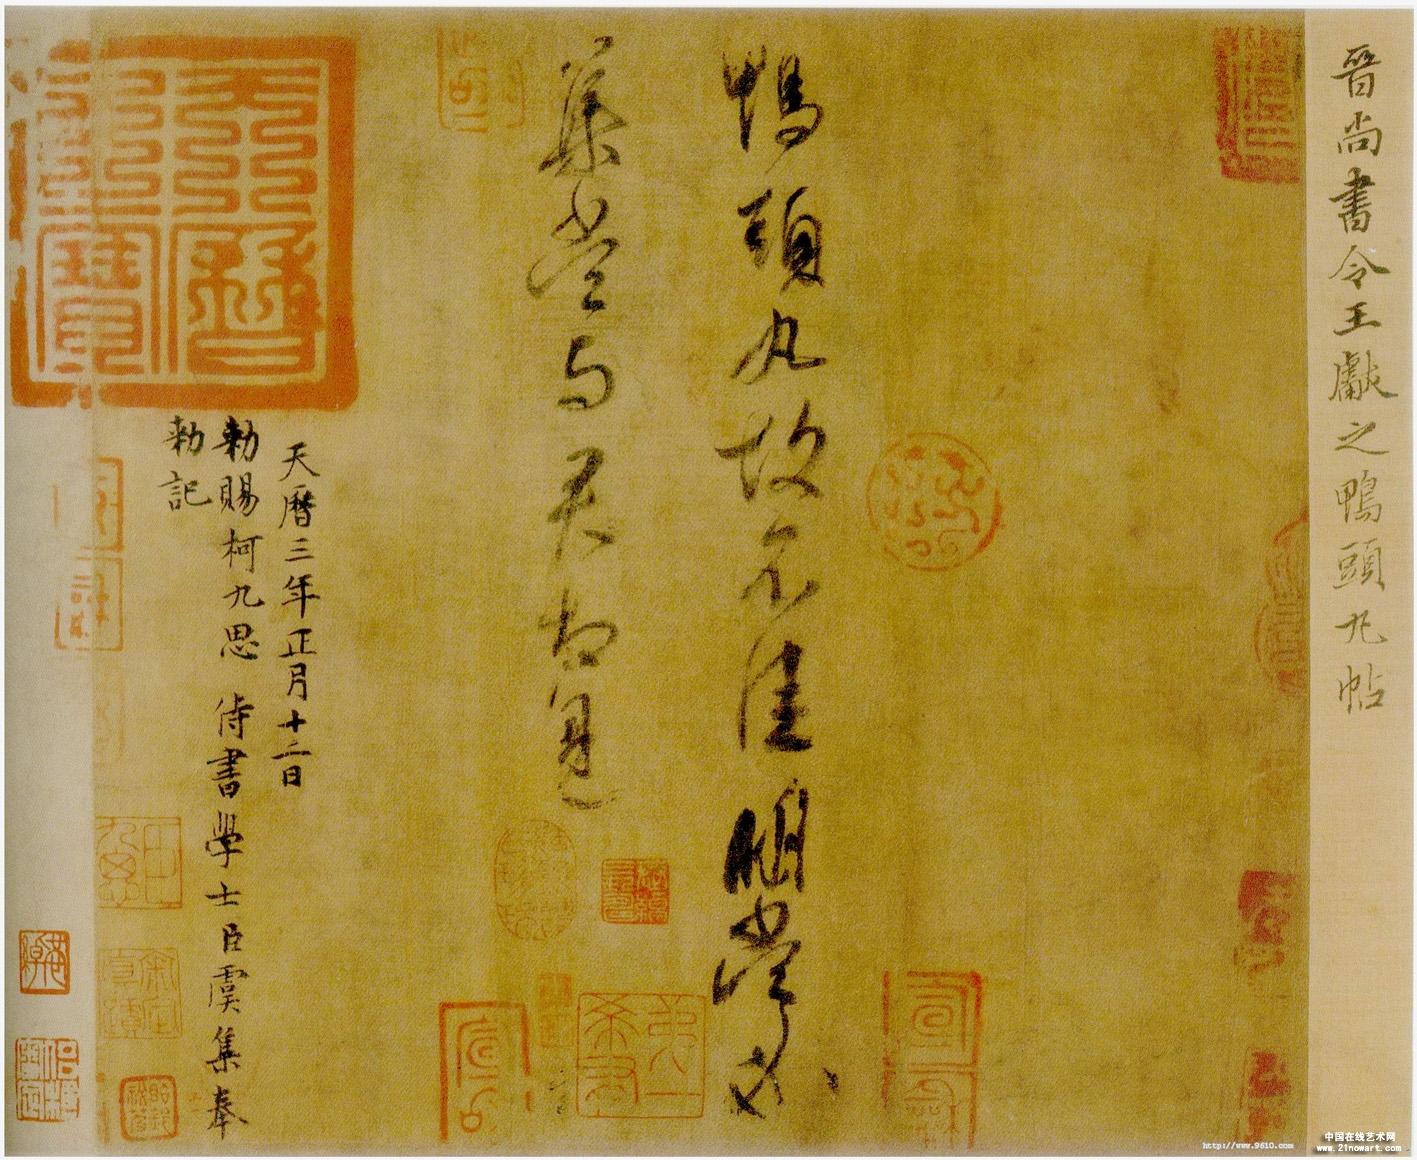 晉尚書令王獻之鴨頭丸帖
鴨頭丸故不佳明當必
集當与君相見
天曆三年正月十二日
勅賜柯九思侍書學士臣虞集奉
勅記
天曆之寶
http://www.9610.com
中国在线艺术网
www.21nowart.com